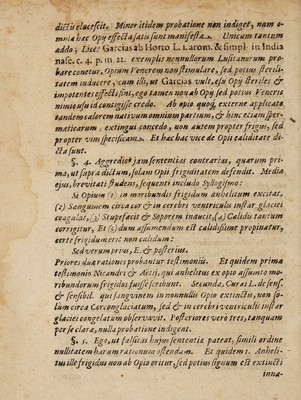 dictis elucescit. Minor itidem probatione non indiget, nam o-
mnia hæc Opij effecta satis sunt manifesta.. Unicum tantum
addo; Licet Garcias ab Horto L. 1. arom. & simpl. in India
nasc. c. 4. p. m. 22. exemplis nonnullorum Lusitanorum pro-
bare conetur, Opium Venerem non stimulare, sed potius sterili-
tatem inducere, cum illi, ut Garcias vult, esu Opij steriles &
impotentes effecti sint, ego tamen no ab Opij sed potius Veneris
nimio usu id contigisse credo. Ab opio quoq; externe applicato
tandem calorem nativum omnium partium, & hinc etiam sper-
maticarum, extingui concedo, non autem propter frigus, sed
propter vim specificam. Et hæc hac vice de Opii caliditate di-
cta sunt.
§. 4. Aggredior jam sententias contrarias, quarum pri-
ma, ut supra dictum, solam Opii frigiditatem defendit. Media
ejus, brevitati studens, sequenti includo Syllogismo:
Si Opium (1) in moribundis frigidum anhelitum excitat,
(2) Sanguinem circa cor & in cerebri ventriculis instar glaciei
coagulat, (3) Stupefacit & Soporem inducit, (4) Calidis tantum
corrigitur, Et (5) dum assumendum est calidissime propinatur,
certe frigidum erit non calidum:
Sed verum prius, E. & posterius.
Priores duæ rationes probantur testimoniis. Et quidem prima
testimonio Nicandri & Aëtij, qui anhelitus ex opio assunto mo-
ribundorum frigidos fuisse scribunt. Secunda, Curai L. de sens.
& sensibil. qui sangvinem in nonnullis Opio extinctis, non so-
lum circa Cor conglaciatum, sed & in cerebri ventriculis instar
glaciei congelatum observavit. Posteriores vero tres, tanquam
per se claræ, nulla probatione indigent.
§. 5. Ego, ut falsitas hujus sententiæ pateat, simili ordine
nullitatem harum rationum ostendam. Et quidem 1. Anheli-
tus ille frigidus non ab Opio oritur, sed potius signum est extincti
inna-